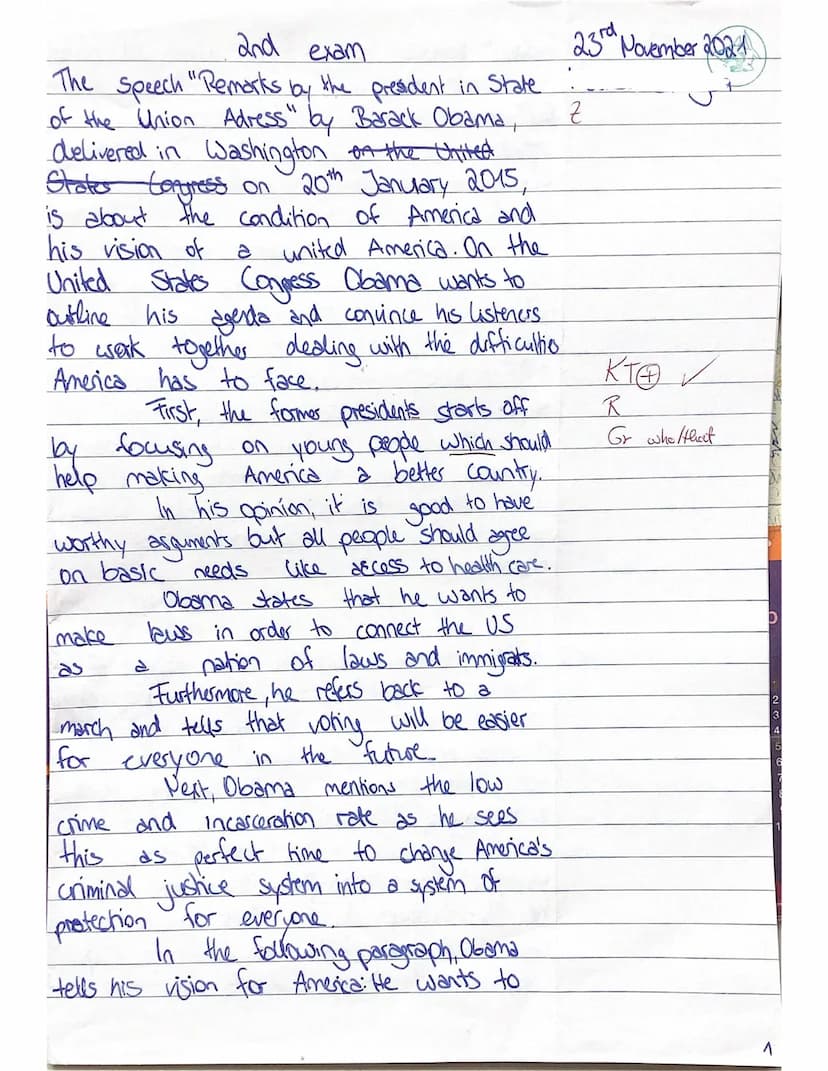 2nd exam
23rd November 2021
The speech "Remarks by the president in State
of the Union Adress" by Barack Obama,
Z
delivered in Washington on the United
States Congress on 20th January 2015,
is about the condition of America and
his vision of a united America. On the
United States Congress Obama wants to
outline his agenda and convince his listeners
to work together dealing with the difficultie
America has to face.
KT+ ✓
First, the former presidents starts off
R
by focusing on young people which should
Gr who/that
help making America a better country.
In his opinion, it is good to have
worthy arguments but all people should agree
on basic needs like access to health care.
Obama states that he wants to
make laws in order to connect the US
as a nation of laws and immigrats.
Furthermore, he refers back to a
march and tells that voting will be easier
for everyone in the future.
Next, Obama mentions the low
crime and incarceration rate as he sees
this as perfect time to change America's
criminal justice system into a system of
protection for everyone.
In the following paragraph, Obama
tells his vision for America: He wants to
1